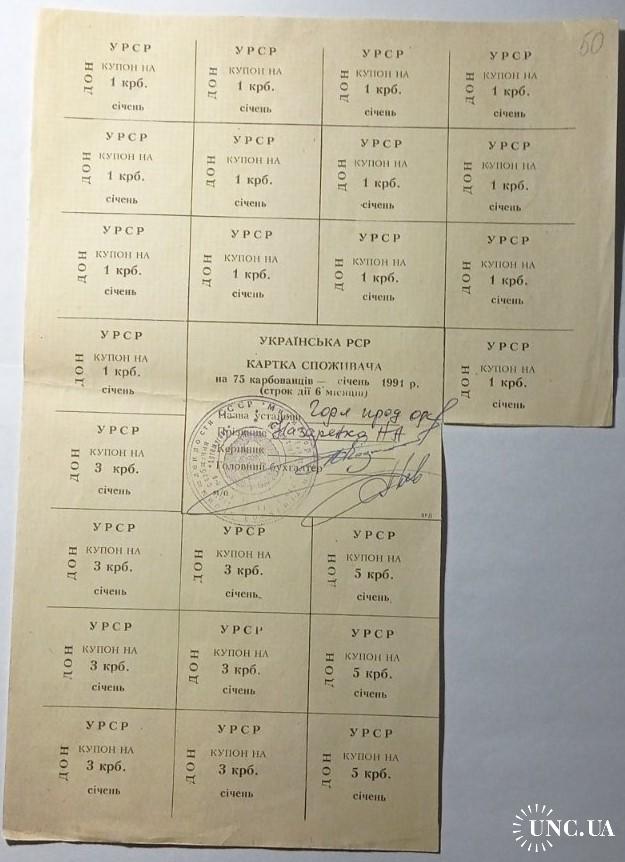 50
УРСР УРСР УРСР УРСР
ДОН КУПОН НА ДОН КУПОН НА ДОН КУПОН НА ДОН КУПОН НА
1 крб. 1 крб. 1 крб. 1 крб.
січень січень січень січень
УРСР УРСР УРСР УРСР
ДОН КУПОН НА ДОН КУПОН НА ДОН КУПОН НА ДОН КУПОН НА
1 крб. 1 крб. 1 крб. 1 крб.
січень січень січень січень
УРСР УРСР УРСР УРСР
ДОН КУПОН НА ДОН КУПОН НА ДОН КУПОН НА ДОН КУПОН НА
1 крб. 1 крб. 1 крб. 1 крб.
січень січень січень січень
УРСР
ДОН КУПОН НА
1 крб.
січень
УКРАЇНСЬКА РСР
КАРТКА СПОЖИВАЧА
на 75 карбованців — січень 1991 р.
(строк дії 6 місяців)
Назва установи
Прізвище Назаренко Н А
Керівник
Головний бухгалтер
м/п
УРСР
ДОН КУПОН НА
1 крб.
січень
УРСР
ДОН КУПОН НА
3 крб.
січень
УРСР УРСР УРСР
ДОН КУПОН НА ДОН КУПОН НА ДОН КУПОН НА
3 крб. 3 крб. 5 крб.
січень січень січень
УРСР УРСР УРСР
ДОН КУПОН НА ДОН КУПОН НА ДОН КУПОН НА
3 крб. 3 крб. 5 крб.
січень січень січень
УРСР УРСР УРСР
ДОН КУПОН НА ДОН КУПОН НА ДОН КУПОН НА
3 крб. 3 крб. 5 крб.
січень січень січень
UNC.UA